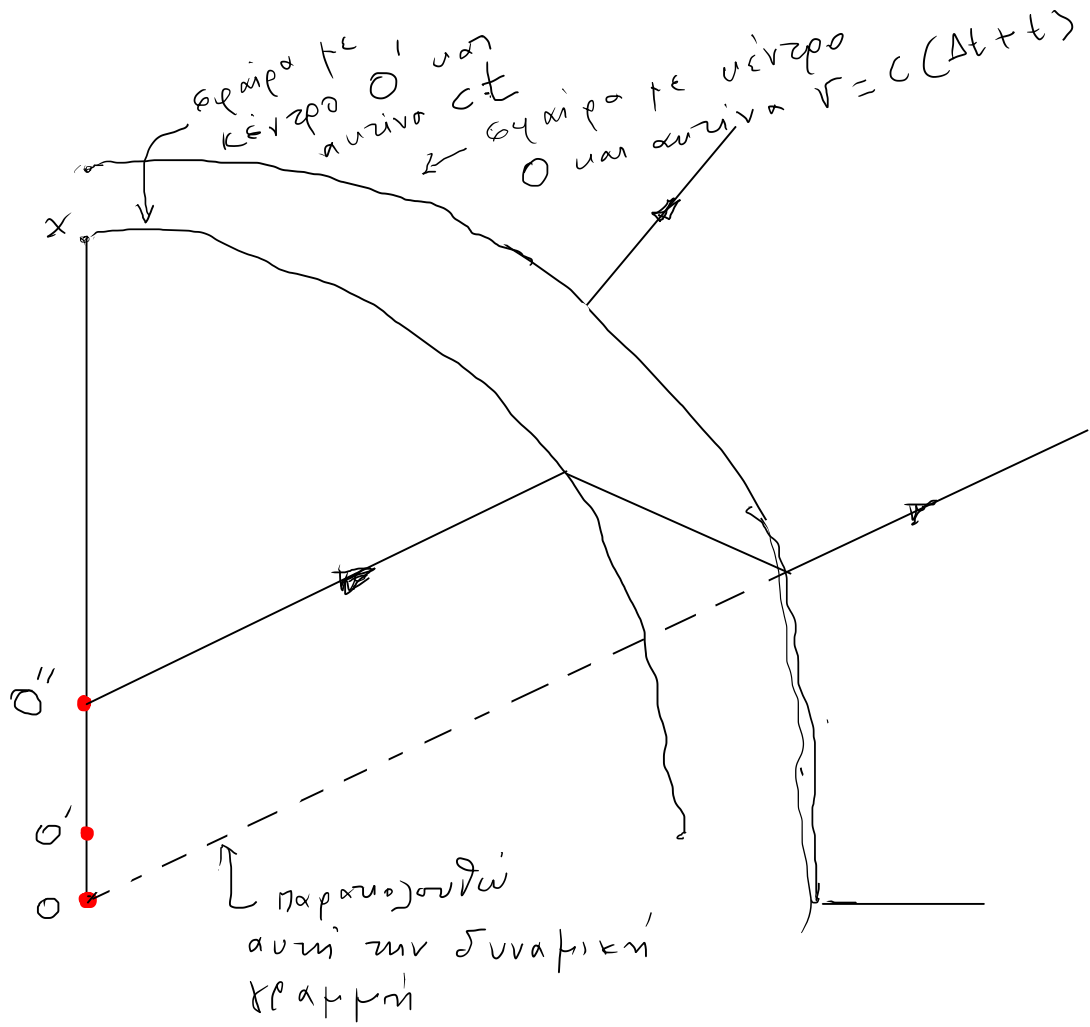 σφαίρα με
κέντρο O' και
ακτίνα ct
← σφαίρα με κέντρο
O και ακτίνα r = c(Δt + t)
x
O''
O'
O
παρακολουθώ
αυτή την δυναμική
γραμμή